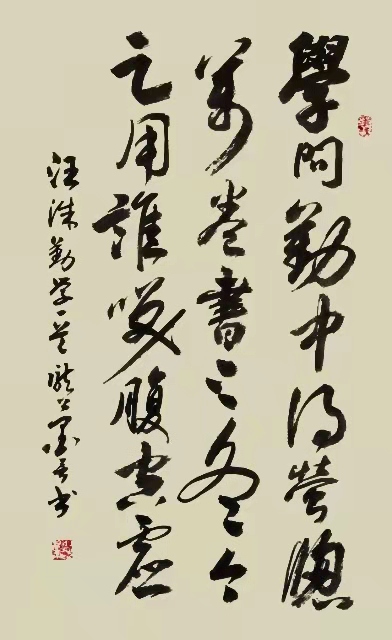 學問勤中得螢牕
萬卷書三冬今
足用誰咲腹空虛
汪洙勤学一首 书